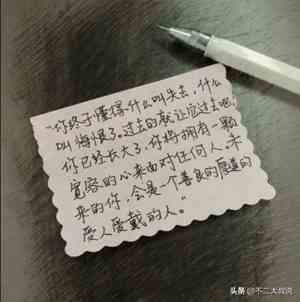 “你终于懂得什么叫失去,什么
叫悔恨了。过去的就让它过去吧,
你已经长大了,你将拥有一颗
宽容的心来面对任何人,未
来的你,会是一个善良的愿遭的
受人爱戴的人。”
头条 @不二大叔说